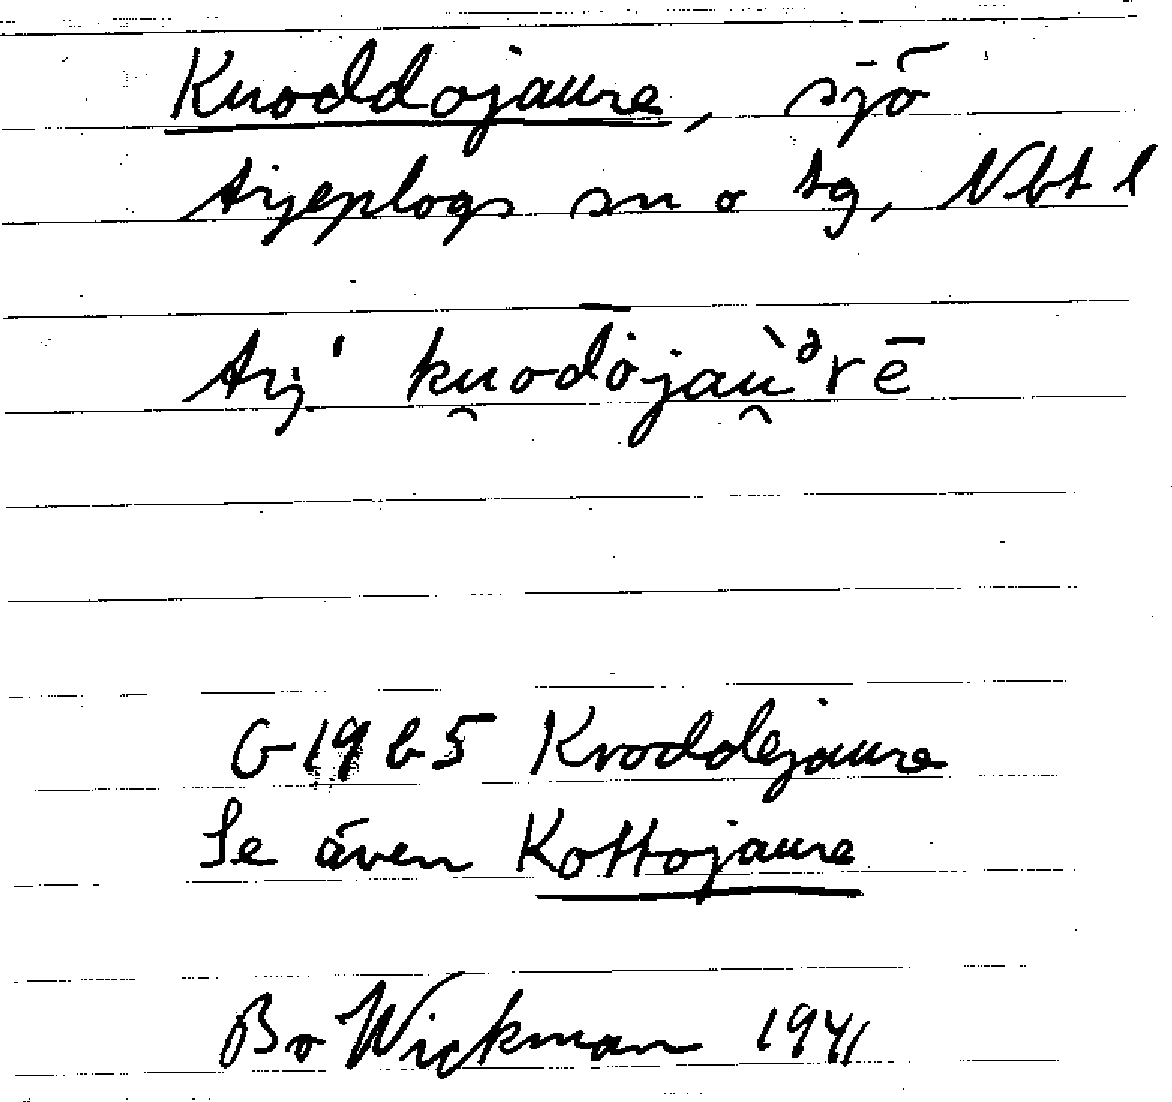 Kuoddojaure, sjö
Arjeplogs sn o tg, Nbt l
Arj' ku̯odȯjaù̯ᵊrē
G1965 Kvoddejaure
Se även Kottojaure
Bo Wickman 1941